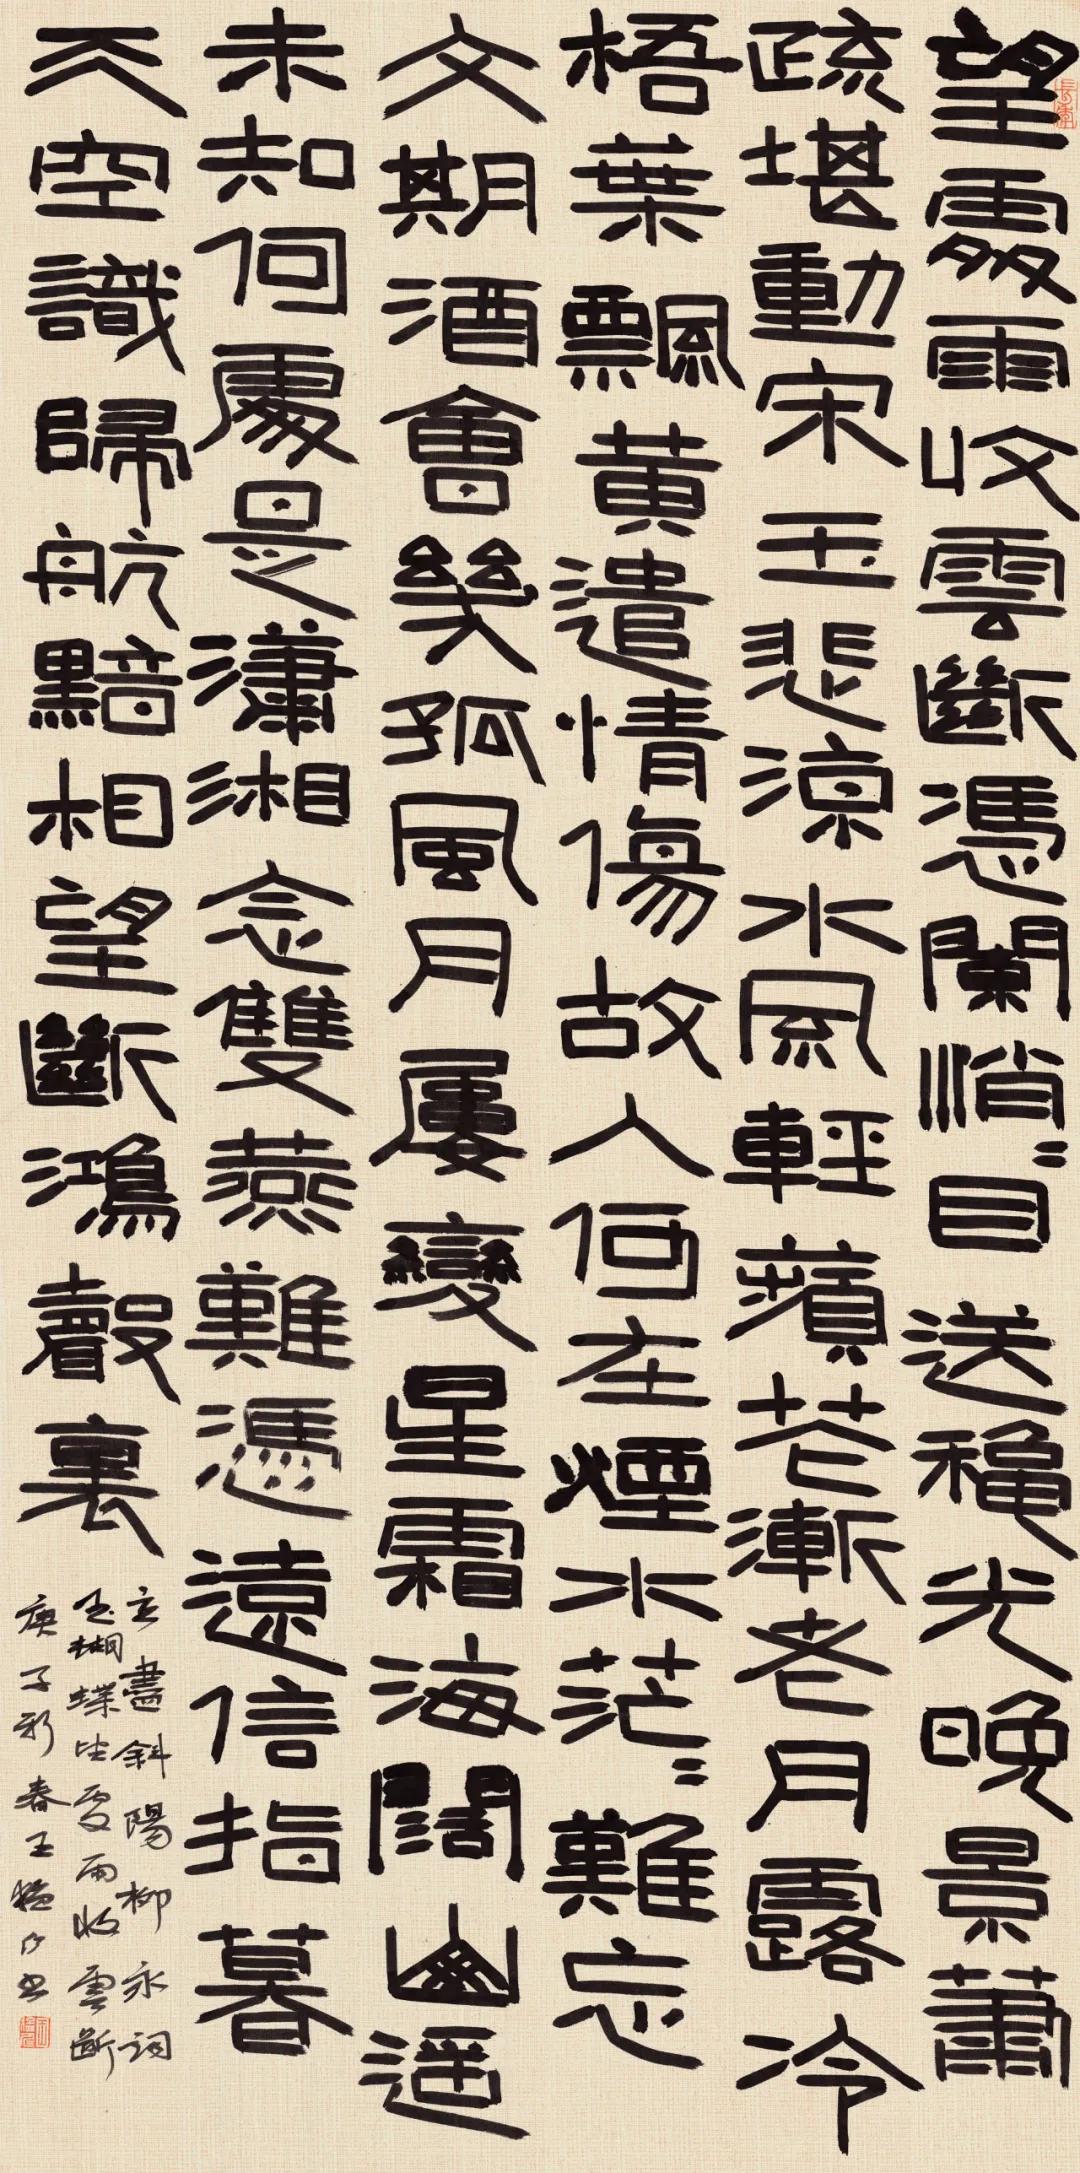 望處雨收雲斷憑闌悄〻目送穐光晚景蕭
疏堪動宋玉悲涼水風輕蘋花漸老月露冷
梧葉飄黃遣情傷故人何在煙水茫〻難忘
文期酒會幾孤風月屢變星霜海闊山遙
未知何處是瀟湘念雙燕難憑遠信指暮
天空識歸航黯相望斷鴻聲裏
立盡斜陽柳永詞
玉蝴蝶望處雨收雲斷
庚子新春王猛仁書